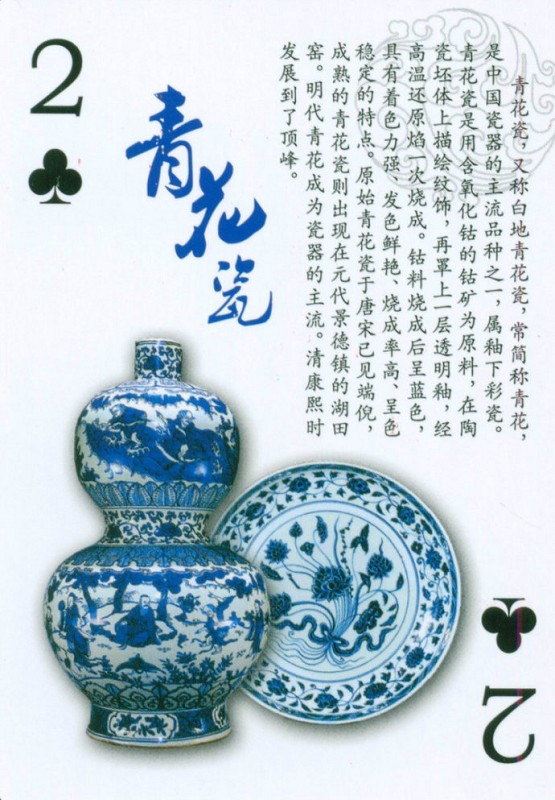 2
青花瓷
青花瓷，又称白地青花瓷，常简称青花，
是中国瓷器的主流品种之一，属釉下彩瓷。
青花瓷是用含氧化钴的钴矿为原料，在陶
瓷坯体上描绘纹饰，再罩上一层透明釉，经
高温还原焰一次烧成。钴料烧成后呈蓝色，
具有着色力强、发色鲜艳、烧成率高、呈色
稳定的特点。原始青花瓷于唐宋已见端倪，
成熟的青花瓷则出现在元代景德镇的湖田
窑。明代青花成为瓷器的主流。清康熙时
发展到了顶峰。
2